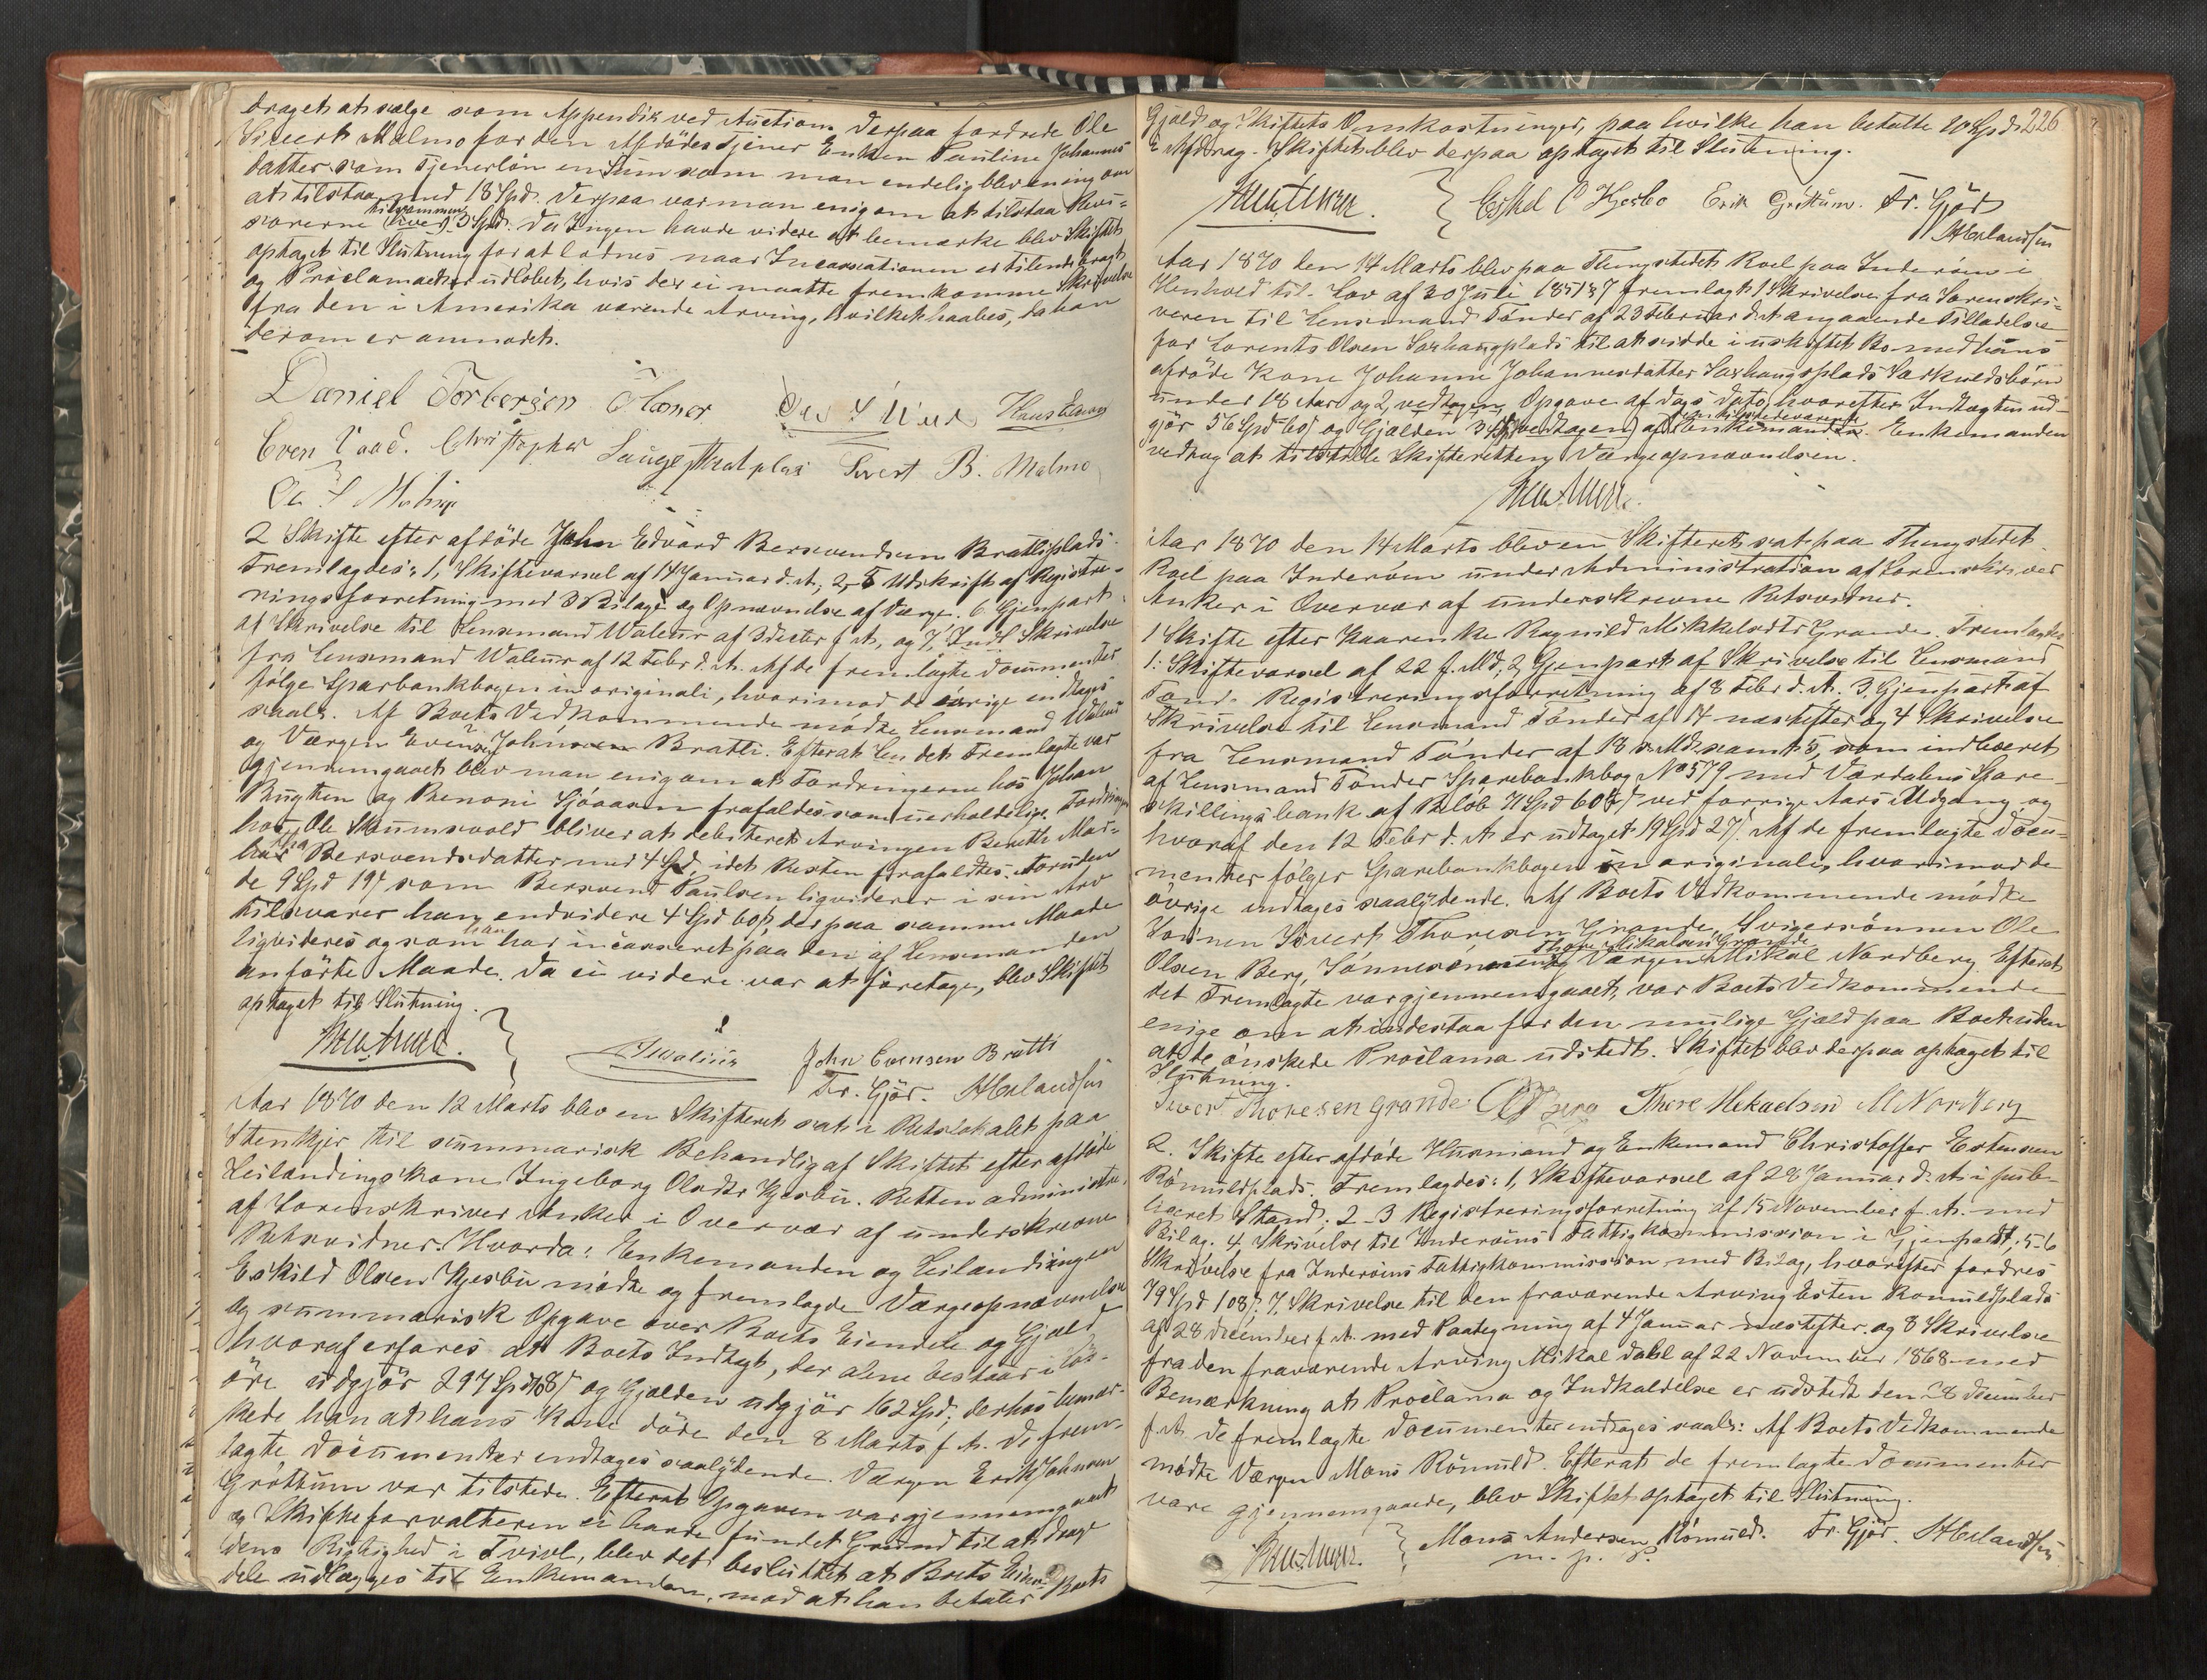 draget at sælge som Appendix ved Auction. Derpaa fordrede Ole
Sivert Malmo for den Afdødes Tjener Enken Pauline Johannes
datter som Tjenerløn en Sum som man endelig blev enig om
at tilstaa med 18 Spd. Derpaa var man enig om at tilstaa Revi-
sorerne tilsammen 3 Spd. Da Ingen havde videre at bemærke blev Skiftet
optaget til Slutning for at lodnes naar Incassationen er tilendebragt
og Proclamaet er udløbet, hvis der ei maatte fremkomme Skrivelse
fra den i Amerika værende Arving, hvilket haabes, da han
derom er anmodet.
Daniel Torbersen
Even Vaad. Christopher Sivert B. Malmo
2 Skifte efter afdøde John Edvard Bersvendsen Bratliplads.
Fremlagdes: 1, Skiftevarsel af 14 Januar d. A., 2-5 Udskrift af Registre-
ringsforretning med 3 Bilage og Opnævnelse af Værge. 6 Gjenpart
af Skrivelse til Lensmand Waleur af 3 dcbr f. A., og 7, Indl. Skrivelse
fra Lensmand Waleur af 12 Febr d. A. Af de fremlagte Documenter
følge Sparbankbogen in originali, hvorimod de øvrige indtages
saal. Af Boets Vedkommende mødte Lensmand Waleur
og Værgen Evensen Bratli. Efterat det Fremlagte var
gjennemgaaet blev man enig om at Fordringerne hos Johan
Rugtten og Benoni Sjöaasen frafaldes som uerholdelige. Fordringen
hos Ole Skaumsvold bliver at debiteret Arvingen Bereth Mar-
tha Bersvendsdatter med 4 Spd, idet Resten frafaldtes. Foruden
de 9 Spd 19 s som Bersvend Paulsen ligviderer i sin Arv
tilsvarer han endvidere 4 Spd 60 s, der paa samme Maade
ligvideres og som han har incasseret paa den af Lensmanden
anførte Maade. Da ei videre var at foretage, blev Skiftet
optaget til Slutning.
John Evensen Bratli
Fr. Gjør. Herlandsen
Aar 1870 den 12 Marts blev en Skifteret sat i Retslokalet paa
Stenkjer til summarisk Behandlig af Skiftet efter afdøde
Leilændingskone Ingeborg Olsdtr Hjesbu. Retten administre.
af Sorenskriver Anker i Overvær af underskrevne
Retsvidner. Hvorda: Enkemanden og Leilændingen
Eskild Olsen Hjesbu mødte og fremlagde Værgeopnævnelse
og summarisk Opgave over Boets Eiendele og Gjæld
hvoraf erfares at Boets Indtægt, der alene bestaar i Løs-
øre udgjør 297 Spd 108 s og Gjælden udgjør 162 Spd; derhos bemær-
kede han at hans Kone døde den 8 Marts f. A. De frem-
lagte Documenter indtages saalydende. Værgen Erik Johnsen
Grøttum var tilstede. Efterat Opgaven var gjennemgaaet
og Skifteforvalteren ei havde fundet Grund til at drage
dens Rigtighed i Tvivl, blev det besluttet at Boets Eien-
dele udlægges til Enkemanden, mod at han betaler Boets
226
Gjæld og Skiftets Omkostninger, paa hvilke han betalte 20 Spd
i Afdrag. Skiftet blev derpaa optaget til Slutning.
Eskel O Hjesbo Erik Grøttum. Fr. Gjør
Herlandsen
Aar 1870 den 14 Marts blev paa Thingstedet Roel paa Inderøen i
Henhold til Lov af 30 Juli 1851 § 7 fremlagt 1, Skrivelse fra Sorenskri-
veren til Lensmand Tønder af 23 Februar d. A. angaaende Tilladelse
for Lorents Olsen Saxhaugplads til at sidde i uskiftet Bo med hans
afdøde Kone Johanne Johannesdatter Saxhaugsplads Særkuldsbørn
under 18 Aar og 2, vedtagen Opgave af Dags Dato, hvorefter Indtægten ud-
gjør 56 Spd 60 s og Gjælden 3 Spd vedtagen af den tilstedeværende Enkemanden. Enkemanden
vedtog at tilstille Skifteretten Værgeopnævnelsen.
Aar 1870 den 14 Marts blev en Skifteret sat paa Thingstedet
Roel paa Inderøen under Administration af Sorenskriver
Anker i Overvær af underskrevne Retsvidner.
1 Skifte efter Kaarenke Ragnild Mikkelsdtr Grande. Fremlagdes
1. Skiftevarsel af 22 f. Md; 2 Gjenpart af Skrivelse til Lensmand
Tønd. Registreringsforretning af 8 Febr d. A. 3. Gjenpart af
Skrivelse til Lensmand Tønder af 14 næstefter og 4 Skrivelse
fra Lensmand Tønder af 18 s. Md. samt 5, som indleveret
af Lensmand Tønder Sparebankbog No 579 med Værdalens Spare-
skillingsbank af Beløb 71 Spd 60 s ved forrige Aars Udgang og
hvoraf den 12 Febr d. A. er udtaget 19 Spd 27 s. Af de fremlagte Docu-
menter følger Sparebankbogen in originali, hvorimod de
øvrige indtages saalydende. Af Boets Vedkommende mødte
Sønnen Sivert Thoresen Grande, Svigersønnen Ole
Olsen Berg, Sønnesønnen Thore Mikalsen Grande og Værgen Mikal Nordberg. Efterat
det Fremlagte var gjennemgaaet, var Boets Vedkommende
enige om at indestaa for den mulige Gjæld paa Boet uden
at de ønskede Proclama udstedt. Skiftet blev derpaa optaget til
Slutning.
Sivert Thoresen Grande. O O Berg Thore Mikaelsen M Nordberg
2. Skifte efter afdøde Husmand og Enkemand Christoffer Estensen
Römuldplads. Fremlagdes: 1, Skiftevarsel af 28 Januar d. A. i pub-
liceret Stand; 2-3 Registreringsforretning af 15 November f. A. med
Bilag. 4 Skrivelse til Inderøens Fattigkommission i Gjenpart, 5-6
Skrivelse fra Inderøens Fattigkommission med Bilag, hvorefter fordres
79 Spd 108 s. 7. Skrivelse til den fraværende Arving Esten Romuldplads
af 28 December f. A. med Paategning af 4 Januar næstefter. og 8 Skrivelse
fra den fraværende Arving Mikal Dahl af 22 November 1868 med
Bemærkning at Proclama og Indkaldelse er udstedt den 28 December
f. A. De fremlagte Documenter indtages saal: Af Boets Vedkommende
mødte Værgen Mons Römuld. Efterat de fremlagte Documenter
vare gjennemgaaede, blev Skiftet optaget til Slutning.
Mons Andersen Römuld. Fr. Gjør. Herlandsen
m. p. P.